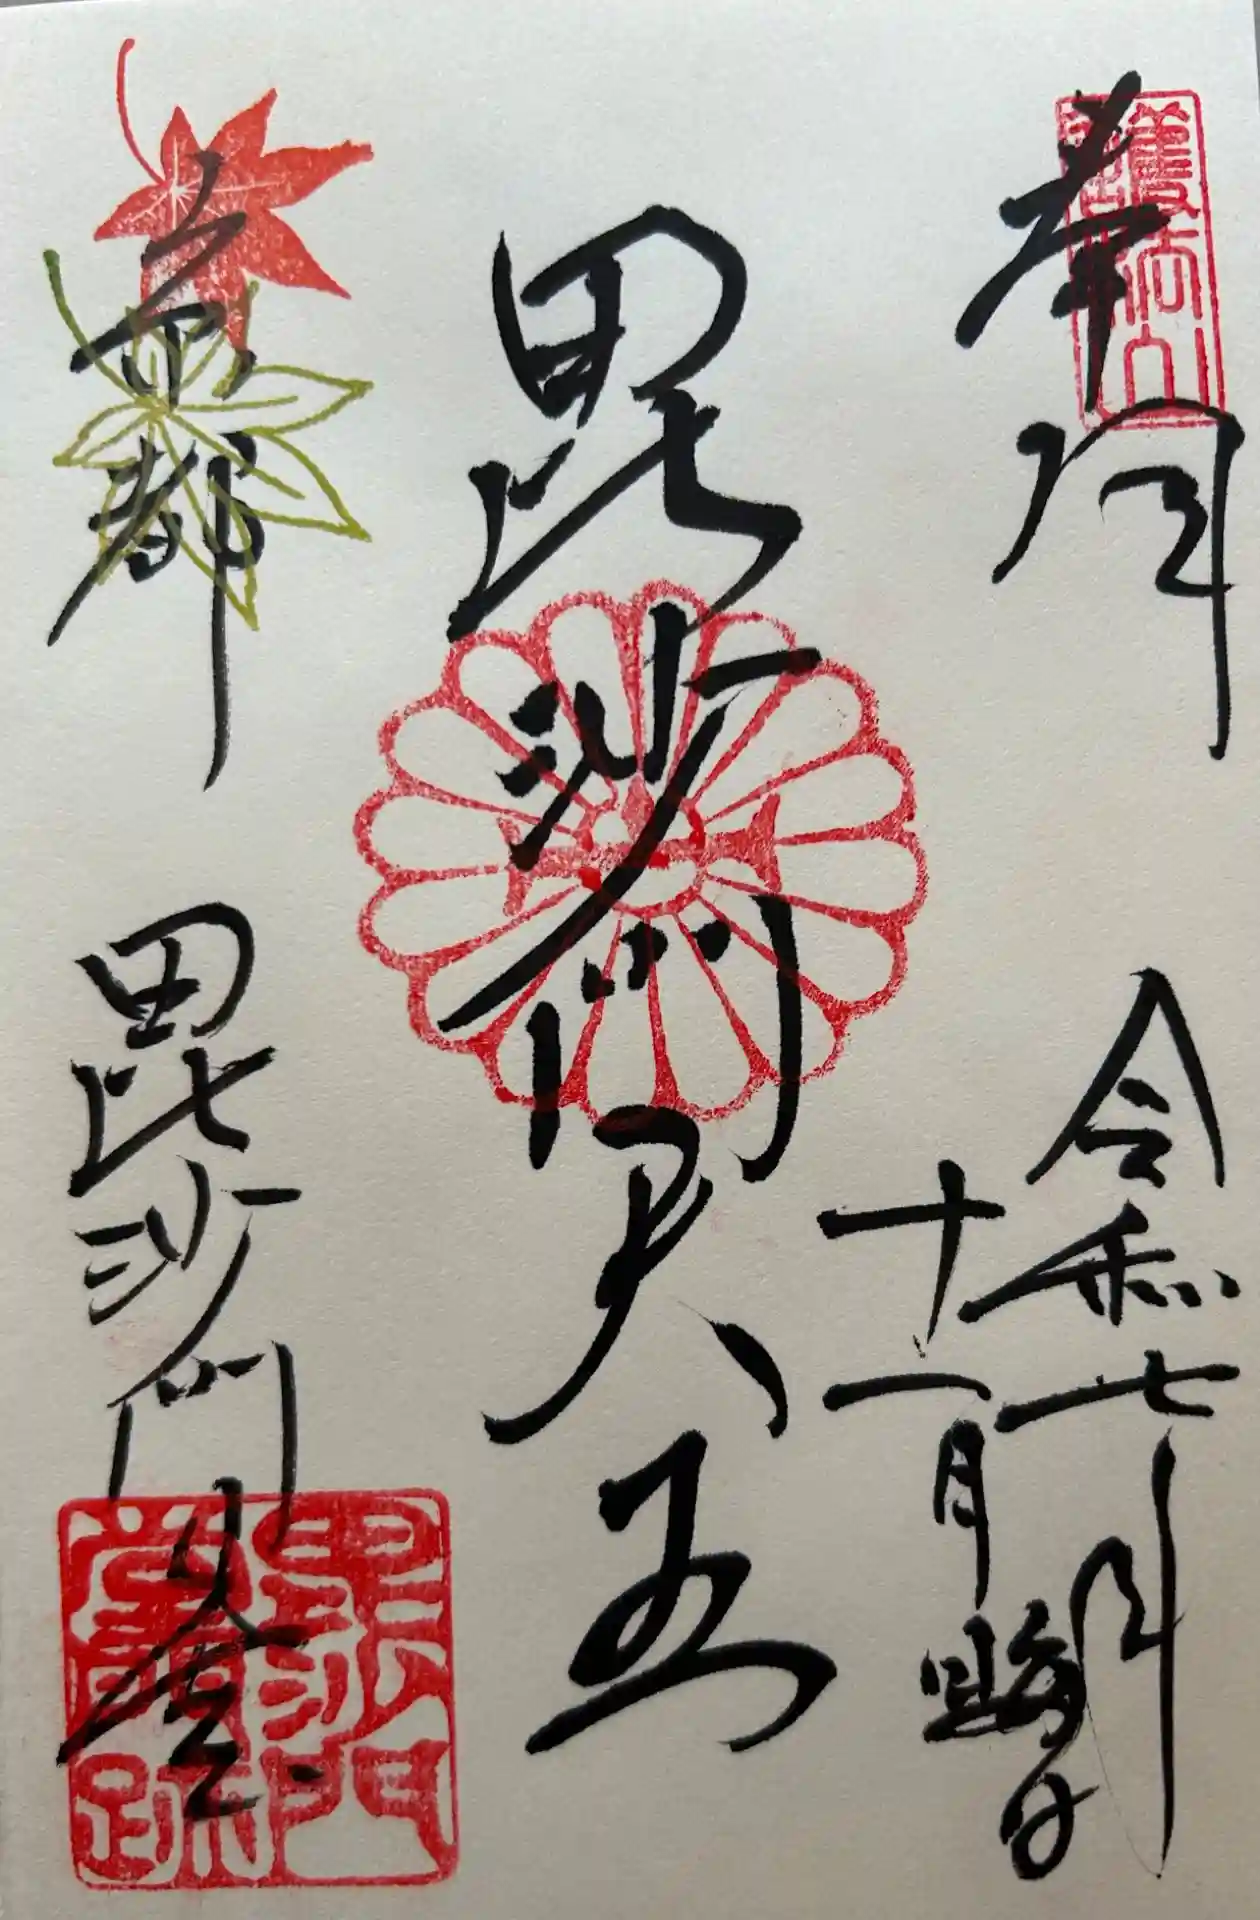 奉拝
護法山
令和七年
十一月晦日
毘沙門天王
京都
毘沙門堂
毘沙門
堂門跡